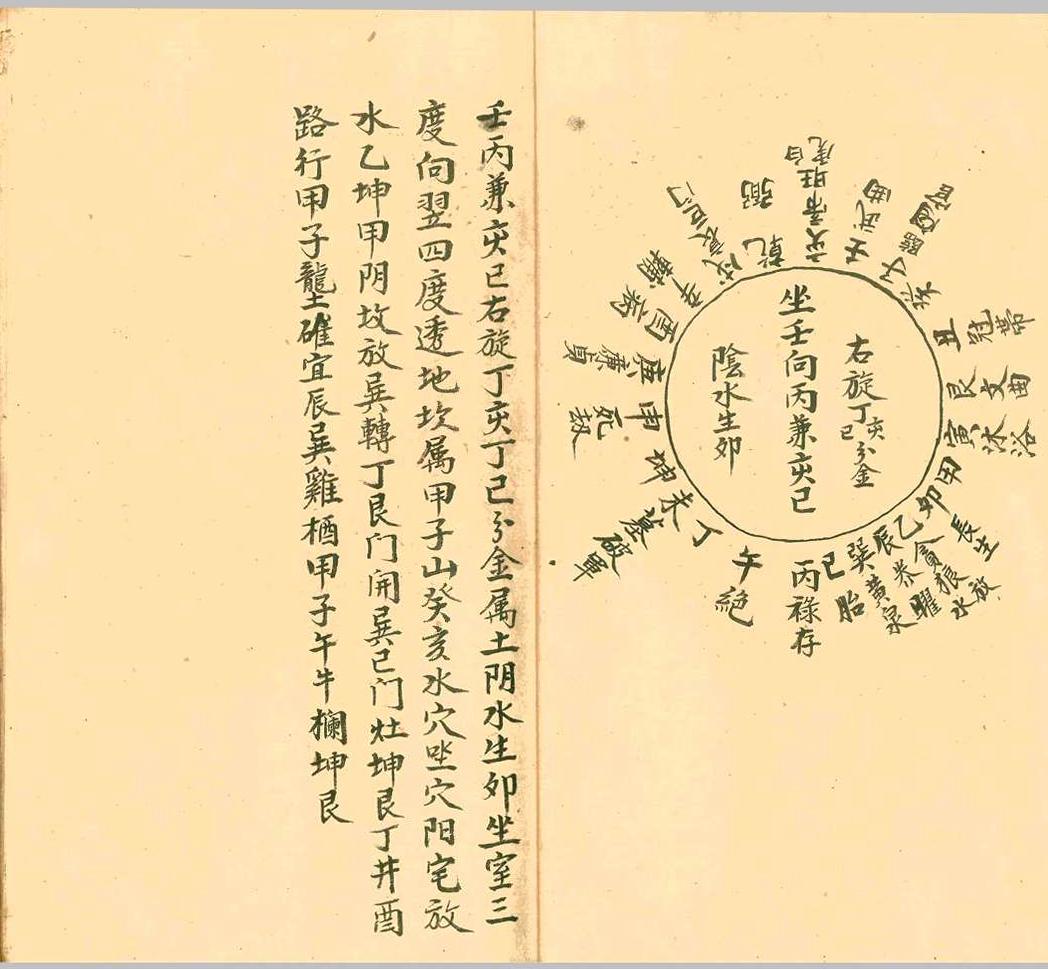 右旋丁亥丁巳分金
坐壬向丙兼亥巳
陰水生卯
壬武曲
子臨官
癸
丑冠帶
艮文曲
寅沐浴
甲
卯長生
乙貪狼放水
辰恭曜
巽黃泉
巳胎
丙祿存
午絕
丁
未墓破軍
坤
申死
庚廉貞
酉病
辛輔
戌衰巨门
乾弼
亥帝旺白虎
壬丙兼亥巳右旋丁亥丁巳分金属土阴水生卯坐室三
度向翌四度透地坎属甲子山癸亥水穴坐穴阳宅放
水乙坤甲阴坟放巽轉丁艮门開巽巳门灶坤艮丁井酉
路行甲子龍土碓宜辰巽雞栖甲子午牛欄坤艮